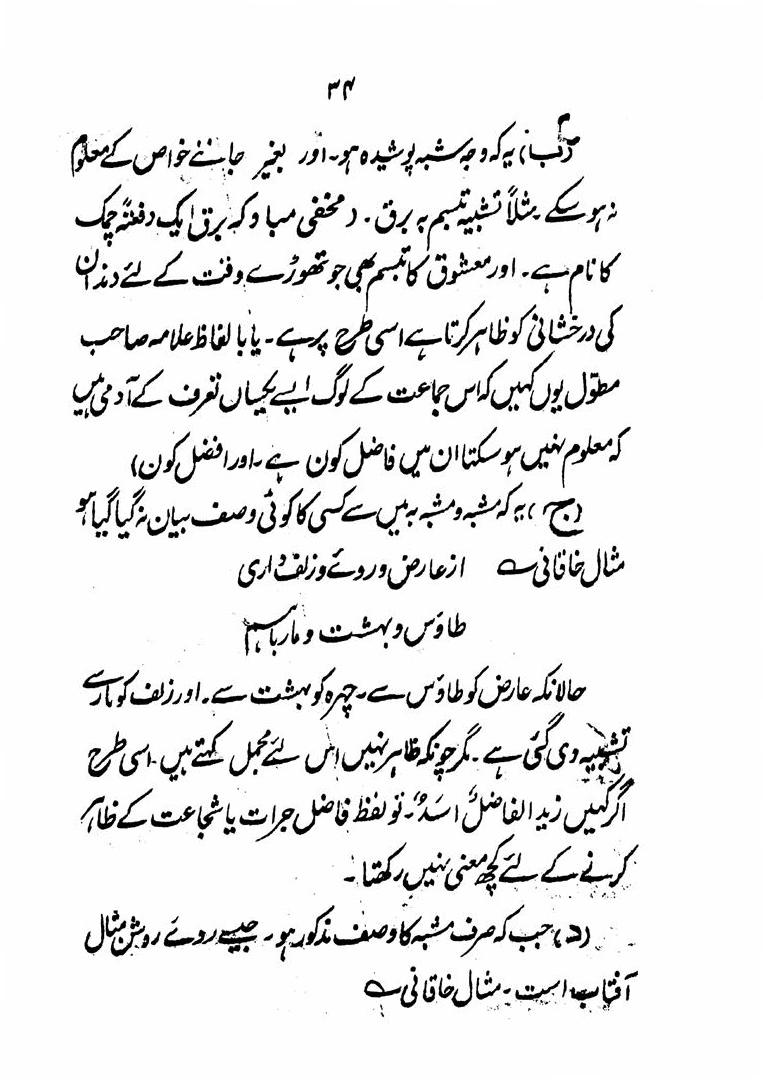 ۳۴
(ب) یہ کہ وجہ شبہ پوشیدہ ہو۔ اور بغیر جاننے خواص کے معلوم
نہ ہو سکے مثلاً تشبیہ تبسم بہ برق۔ (مخفی مباد کہ برق ایک دفعتہً چمک
کا نام ہے۔ اور معشوق کا تبسم بھی جو تھوڑے وقت کے لئے دندان
کی درخشانی کو ظاہر کرتا ہے اسی طرح پر ہے۔ یا بالفاظ علامہ صاحب
مطوّل یوں کہیں کہ اس جماعت کے لوگ ایسے یکساں تعرف کے آدمی ہیں
کہ معلوم نہیں ہو سکتا ان میں فاضل کون ہے۔ اور افضل کون)
(ج) یہ کہ مشبہ و مشبہ بہ میں سے کسی کا کوئی وصف بیان نہ گیا گیا ہو
مثال خاقانی ؎ از عارض و روئے و زلف داری
طاؤس و بہشت و مار باہم
حالانکہ عارض کو طاؤس سے۔ چہرہ کو بہشت سے۔ اور زلف کو مار سے
تشبیہ دی گئی ہے۔ مگر چونکہ ظاہر نہیں اس لئے مجمل کہتے ہیں۔ اسی طرح
اگر کہیں زید الفاضلُ اسدٌ۔ تو لفظ فاضل جرات یا شجاعت کے ظاہر
کرنے کے لئے کچھ معنی نہیں رکھتا۔
(د) جب کہ صرف مشبہ کا وصف مذکور ہو۔ جیسے روئے روشن مثال
آفتاب است۔ مثال خاقانی ؎